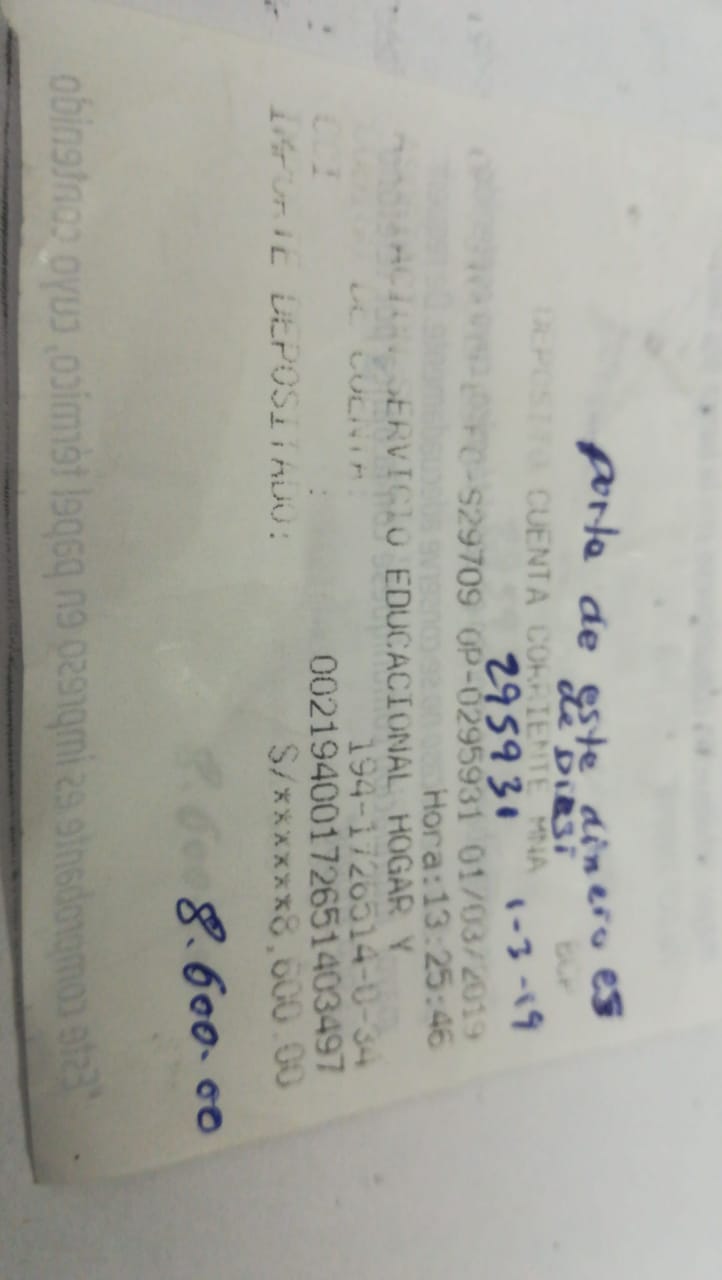 porte de este dinero es
de DIESI
BCP
DEPOSITO CUENTA CORRIENTE MNA
295931 1-3-19
S29709 OP-0295931 01/03/2019
Hora:13:25:46
SERVICIO EDUCACIONAL HOGAR Y
DE CUENTA: 194-1726514-0-34
CCI : 00219400172651403497
IMPORTE DEPOSITADO: S/******8,600.00
8.600.00
"Este comprobante es impreso en papel térmico, cuyo contenido